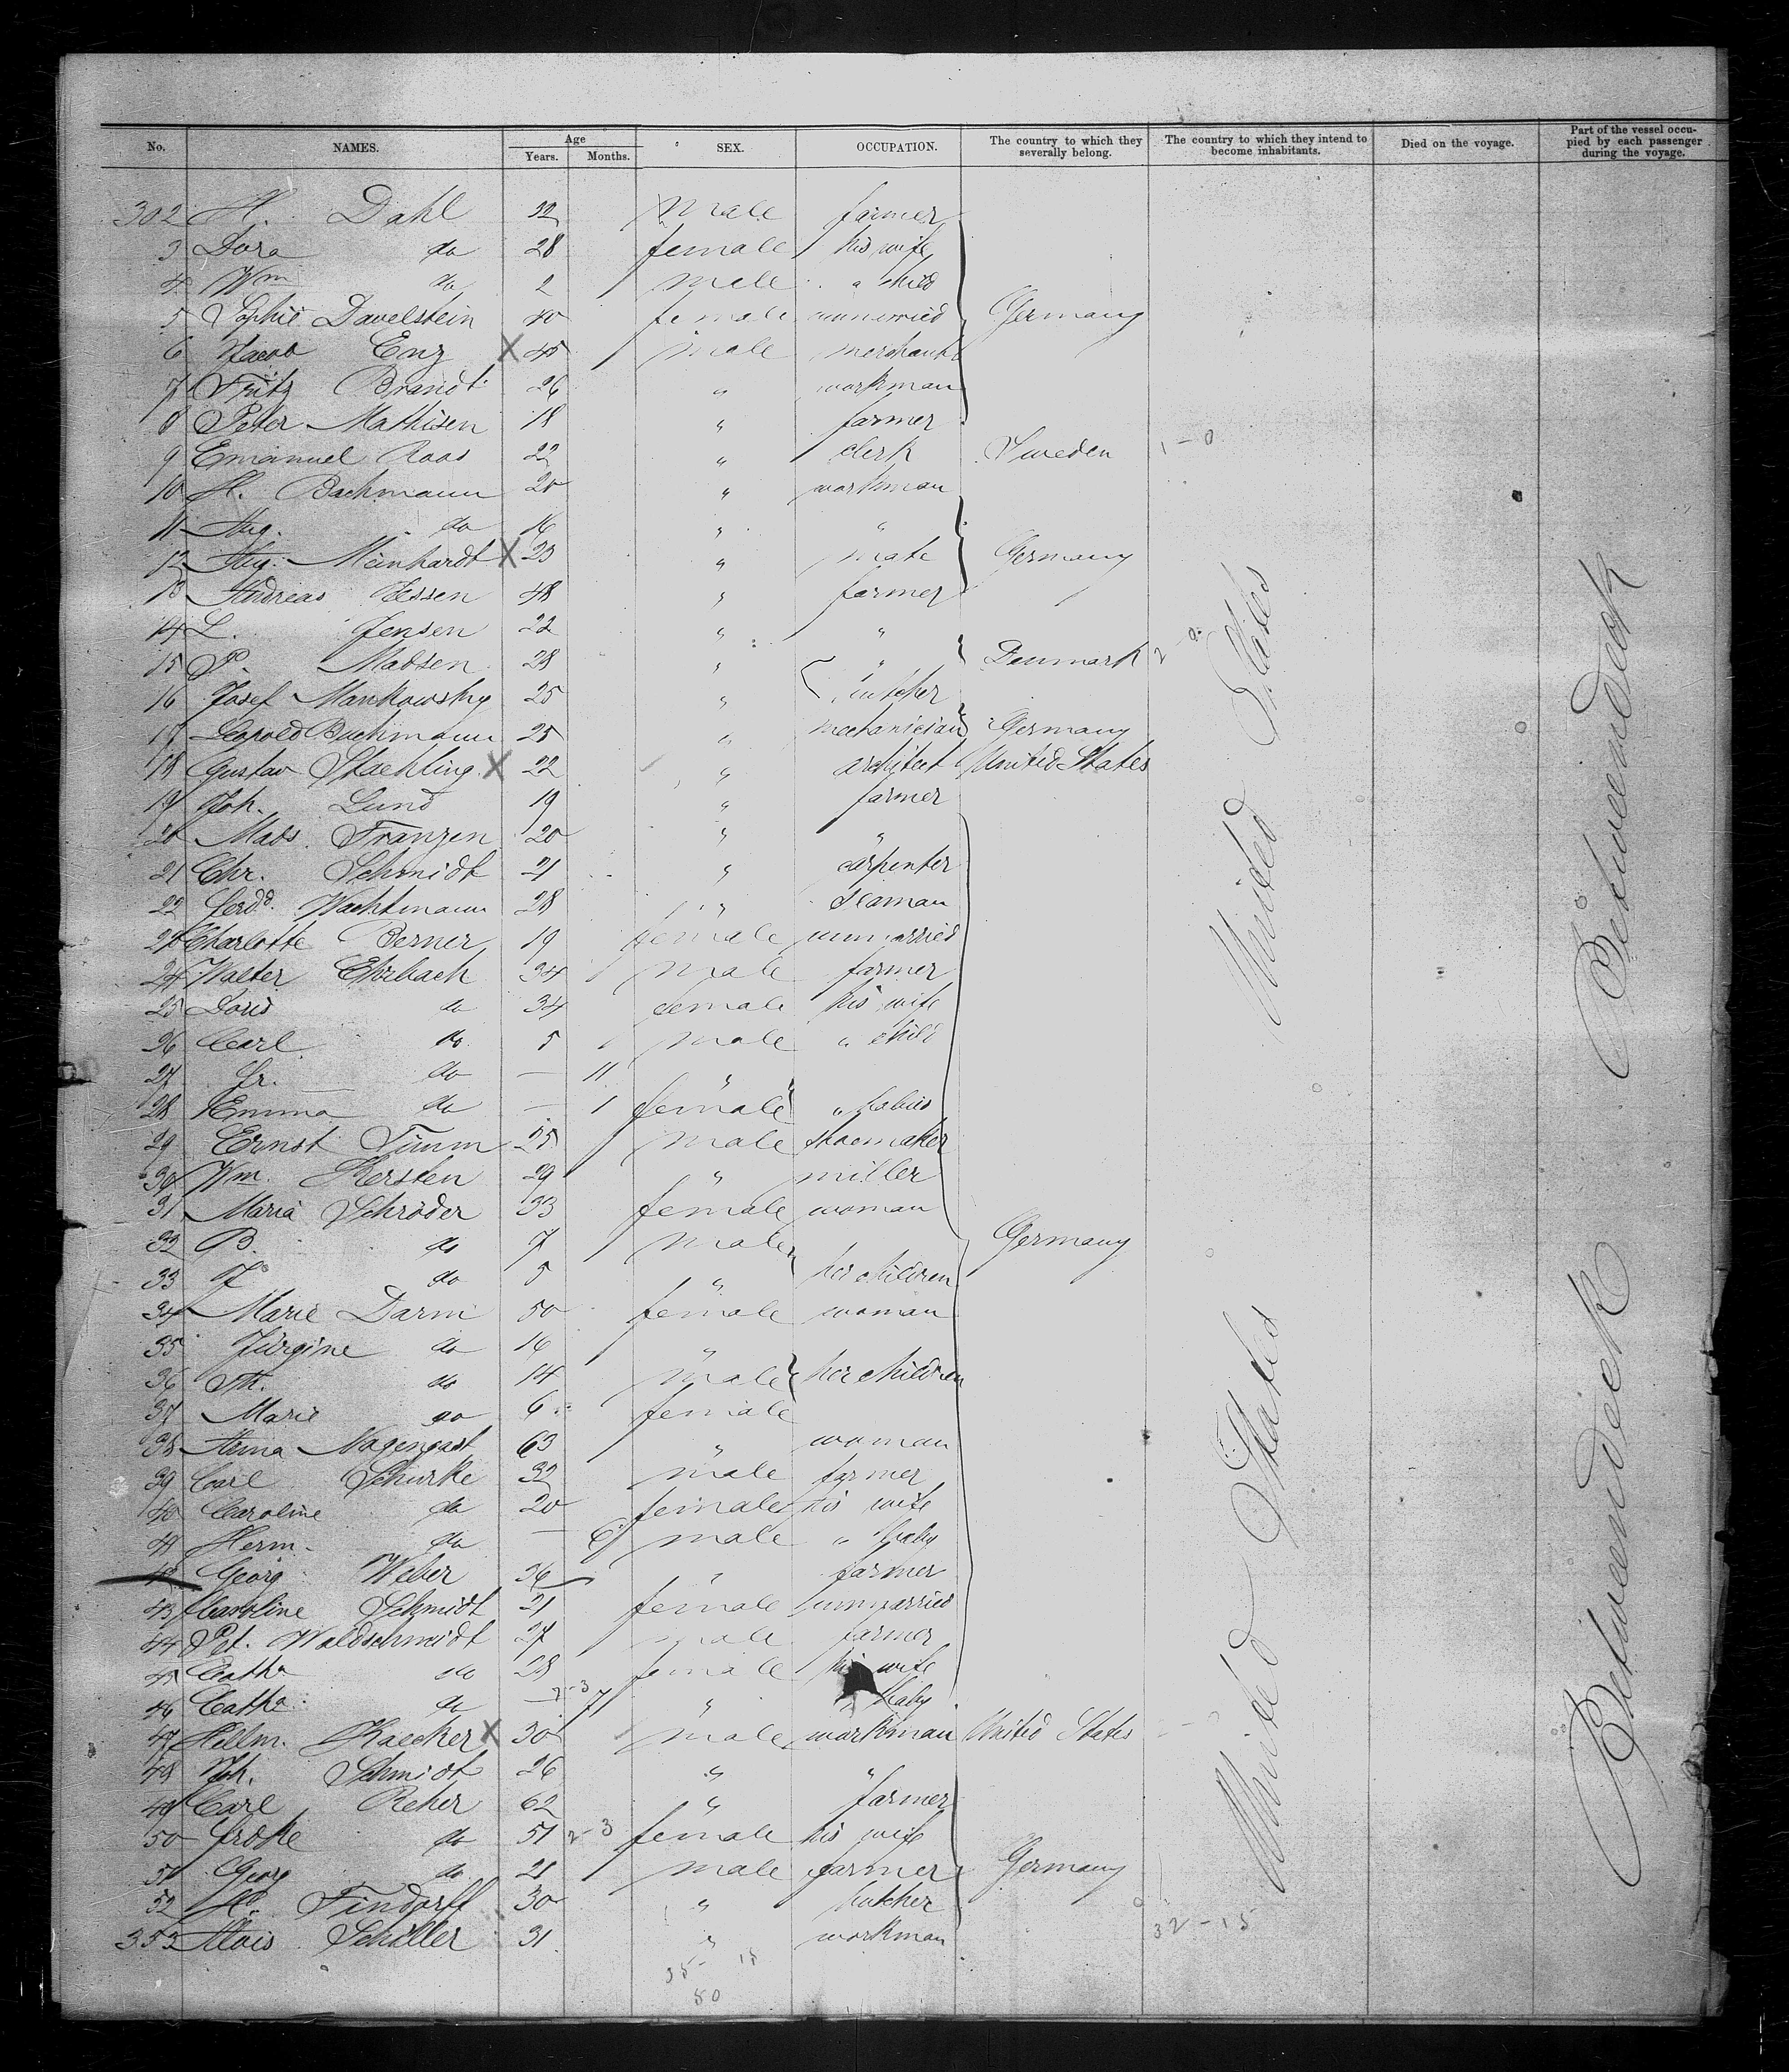 No. NAMES. Age Years. Months. SEX. OCCUPATION. The country to which they severally belong. The country to which they intend to become inhabitants. Died on the voyage. Part of the vessel occupied by each passenger during the voyage.
302 H. Dahl 32 male farmer
3 Dora do 28 female his wife
4 Wm do 2 male " child
5 Sophie Davelstein 40 female unmarried Germany
6 Jacob Enz X 45 male merchant
7 Fritz Brandt 26 " workman
8 Peter Mathisen 18 " farmer
9 Emanuel Roos 22 " clerk Sweden 1-0
10 H. Bachmann 20 " workman
11 Aug. do 16 " "
12 Aug. Meinhardt X 23 " mate Germany
13 Andreas Jessen 48 " farmer
14 L. Jensen 22 " "
15 P. Madsen 28 " " Denmark 2-0
16 Josef Mankowsky 25 " butcher
17 Leopold Bachmann 25 " mechanician Germany
18 Gustav Staehling X 22 " architect United States
19 Joh. Lund 19 " farmer
20 Mads Franzen 20 " "
21 Chr. Schmidt 21 " carpenter
22 Ferdd. Wachtmann 28 " seaman
23 Charlotte Berner 19 female unmarried
24 Walter Ehrbach 34 male farmer
25 Doris do 34 female his wife
26 Carl do 5 male " child
27 Fr. do — 11 "
28 Emma do — 1 female " babies
29 Ernst Timm 25 male shoemaker
30 Wm. Kersten 29 " miller
31 Maria Schröder 33 female woman
32 B. do 7 male Germany
33 J. do 5 " her children
34 Marie Darm 50 female woman
35 Jürgine do 16 "
36 Th. do 14 male her children
37 Marie do 6 female
38 Anna Nagengast 63 " woman
39 Carl Schurke 32 male farmer
40 Caroline do 20 female his wife
41 Herm. do — 6 male " baby
42 Georg Weber 36 " farmer
43 Caroline Schmidt 21 female unmarried
44 Pet. Waldschmidt 27 male farmer
45 Catha do 28 female his wife
46 Catha do — 7 " baby
47 Hellm. Kaecker X 30 male workman United States
48 Joh. Schmidt 26 " "
49 Carl Reher 62 " farmer
50 Frdke do 51 2-3 female his wife
51 Georg do 21 male farmer Germany
52 Hd. Findorff 30 " butcher
353 Alois Schiller 31 " workman
32-15
35-15
50
United States
United States
Betweendeck
Betweendeck